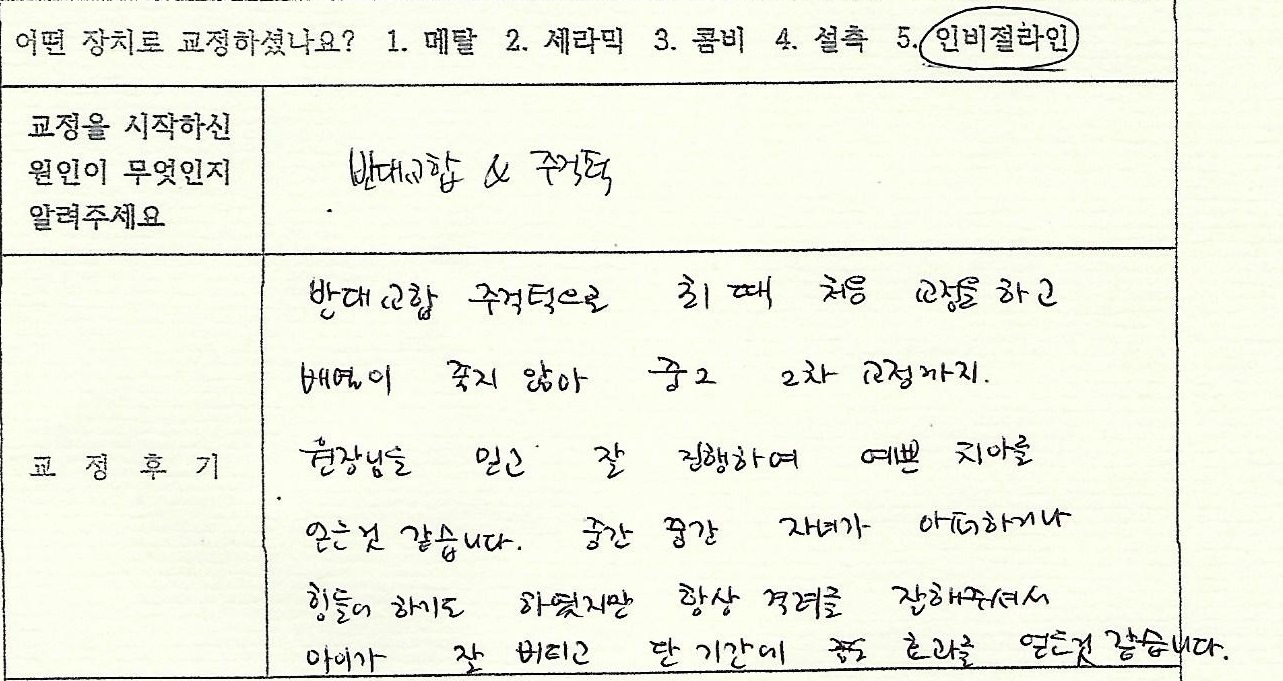 어떤 장치로 교정하셨나요? 1. 메탈 2. 세라믹 3. 콤비 4. 설측 5. 인비절라인
교정을 시작하신
원인이 무엇인지
알려주세요
반대교합 & 주걱턱
교 정 후 기
반대교합 주걱턱으로 초1 때 처음 교정을 하고
배열이 좋지 않아 중2 2차 교정까지.
원장님을 믿고 잘 진행하여 예쁜 치아를
얻는것 같습니다. 중간 중간 자녀가 아퍼하거나
힘들어 하기도 하였지만 항상 격려를 잘해주셔서
아이가 잘 버티고 단 기간에 효과를 얻는것 같습니다.